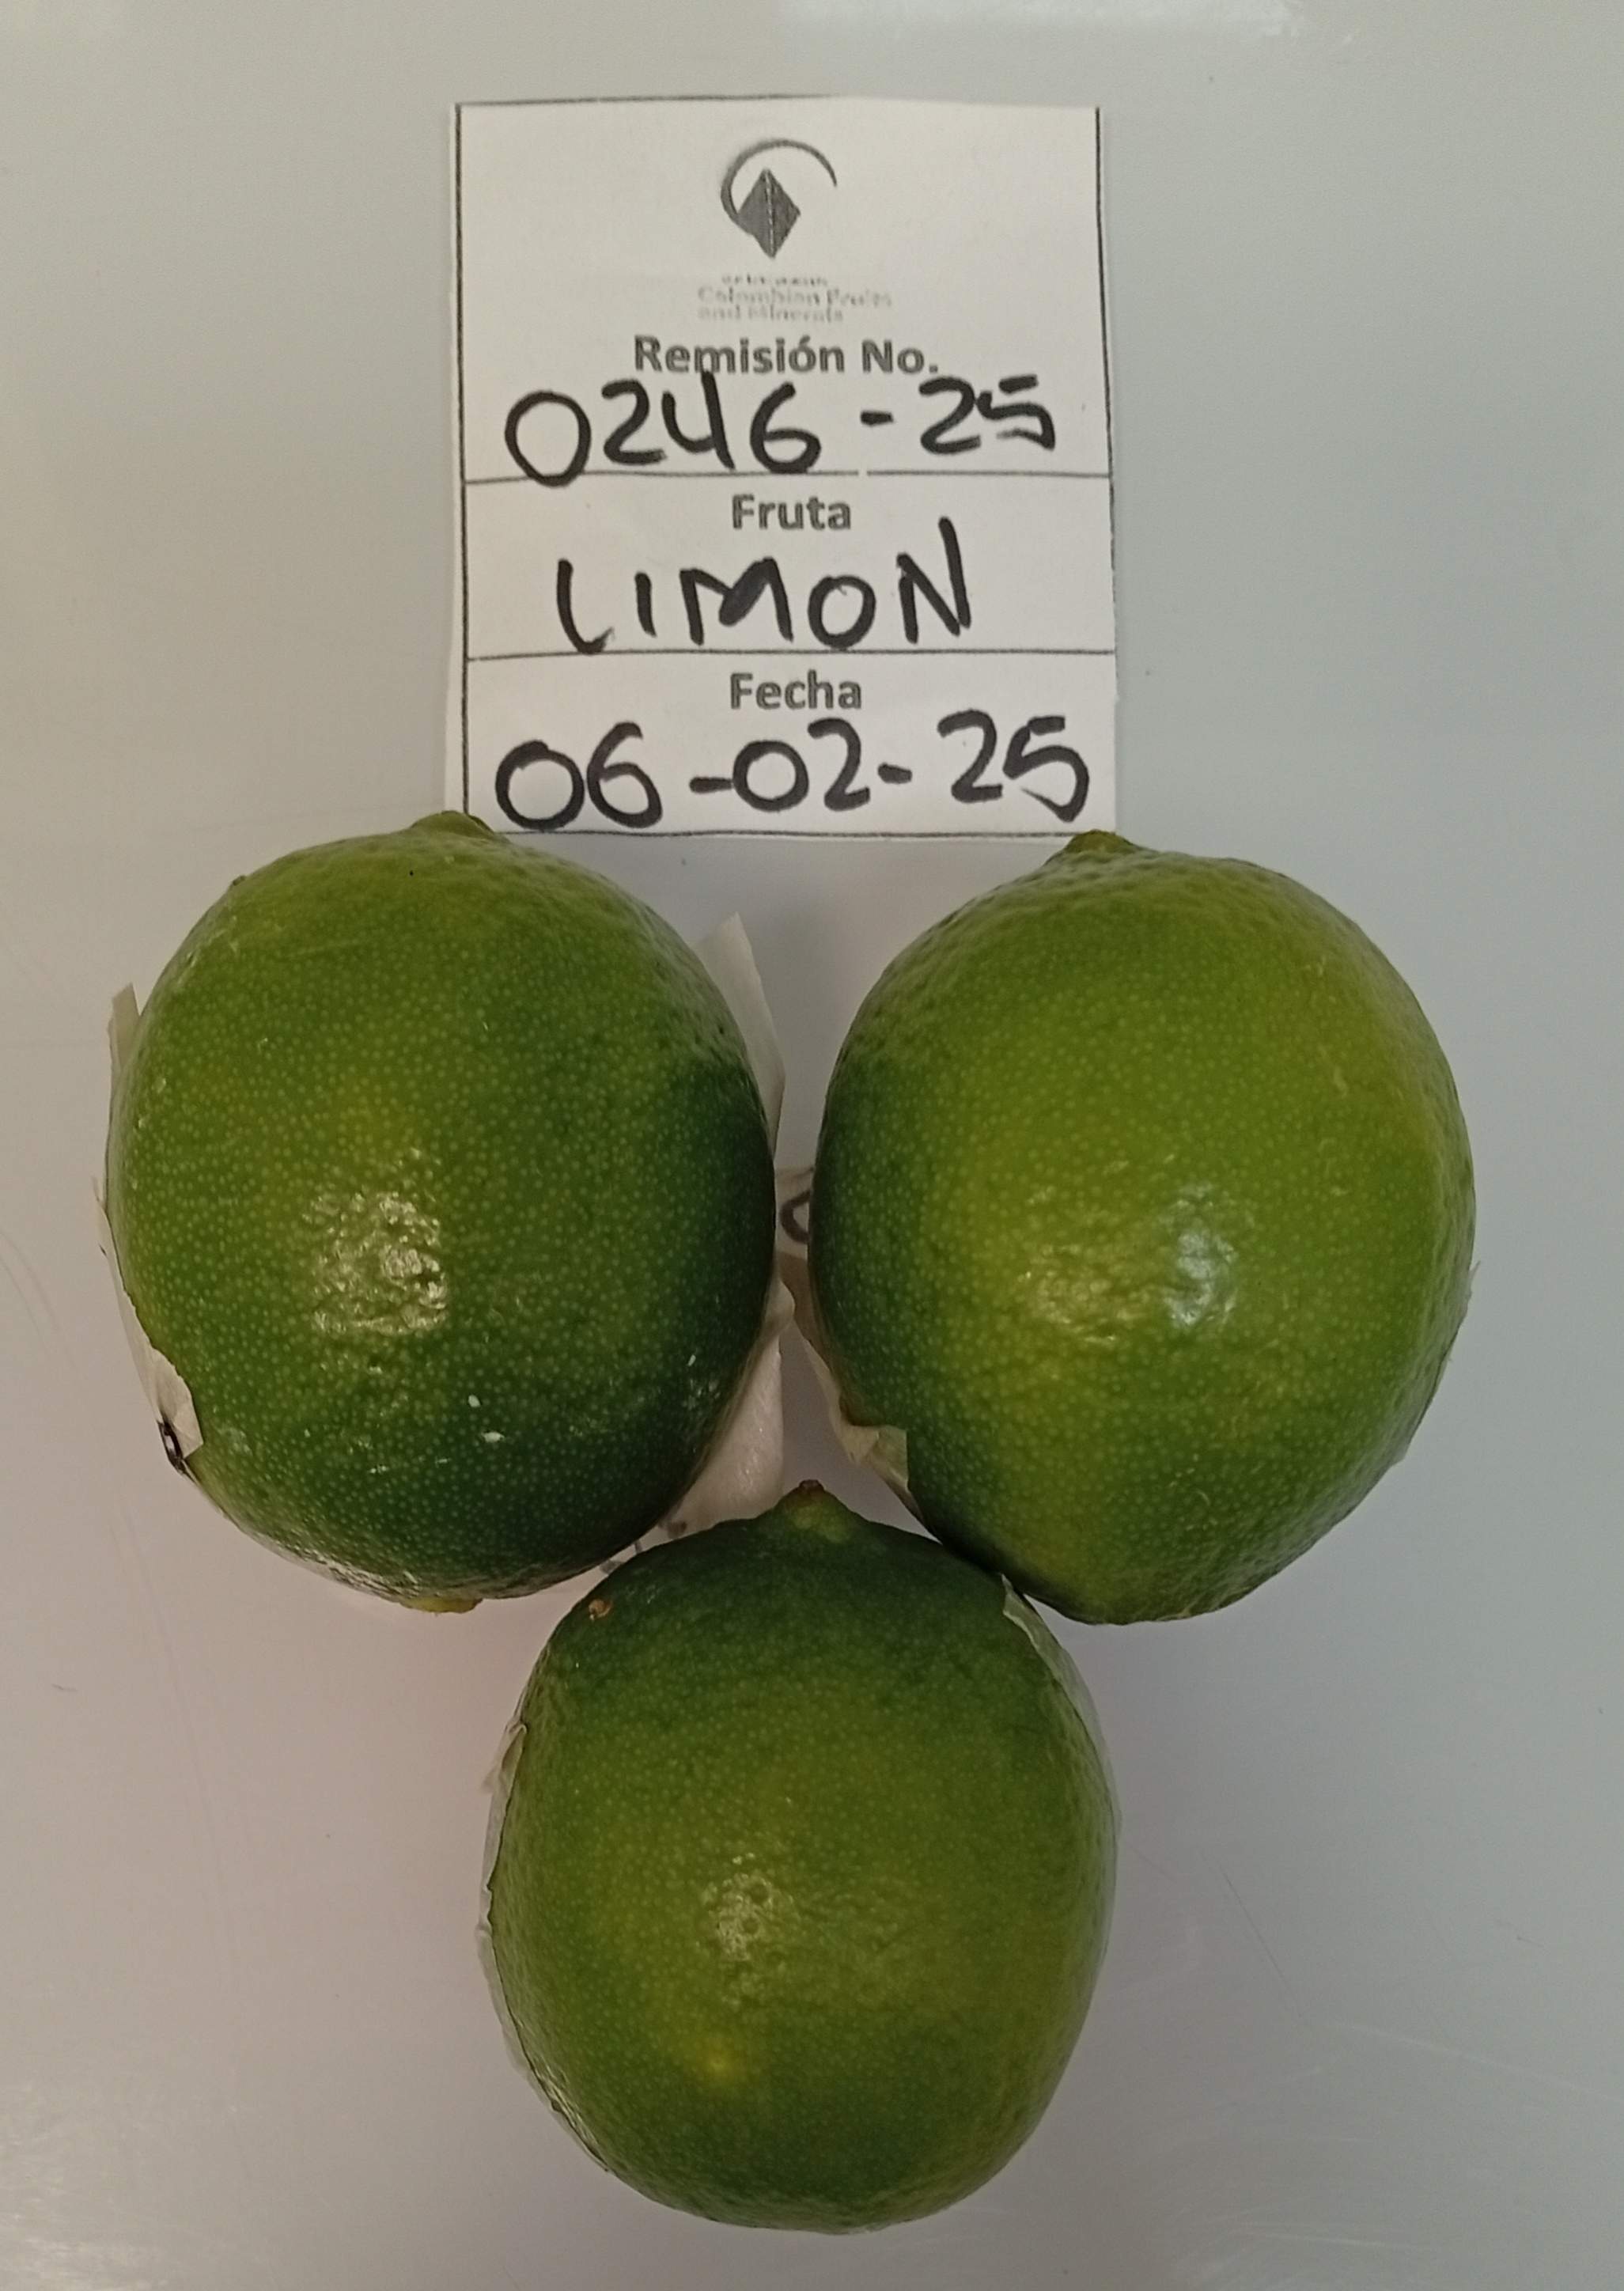 Colombian Fruits
and Minerals
Remisión No.
0246-25
Fruta
LIMON
Fecha
06-02-25